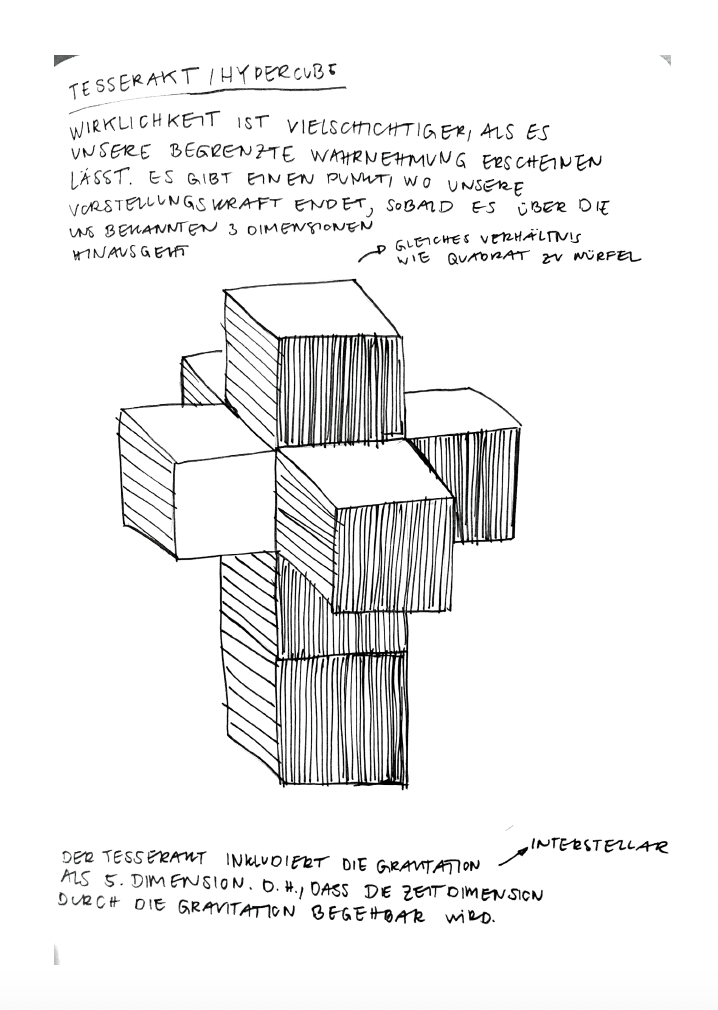 TESSERAKT / HYPERCUBE
WIRKLICHKEIT IST VIELSCHICHTIGER, ALS ES
UNSERE BEGRENZTE WAHRNEHMUNG ERSCHEINEN
LÄSST. ES GIBT EINEN PUNKT, WO UNSERE
VORSTELLUNGSKRAFT ENDET, SOBALD ES ÜBER DIE
UNS BEKANNTEN 3 DIMENSIONEN
HINAUSGEHT
GLEICHES VERHÄLTNIS
WIE QUADRAT ZU WÜRFEL
INTERSTELLAR
DER TESSERAKT INKLUDIERT DIE GRAVITATION
ALS 5. DIMENSION. D.H., DASS DE ZEITDIMENSION
DURCH DIE GRAVITATION BEGEHBAR WIRD.